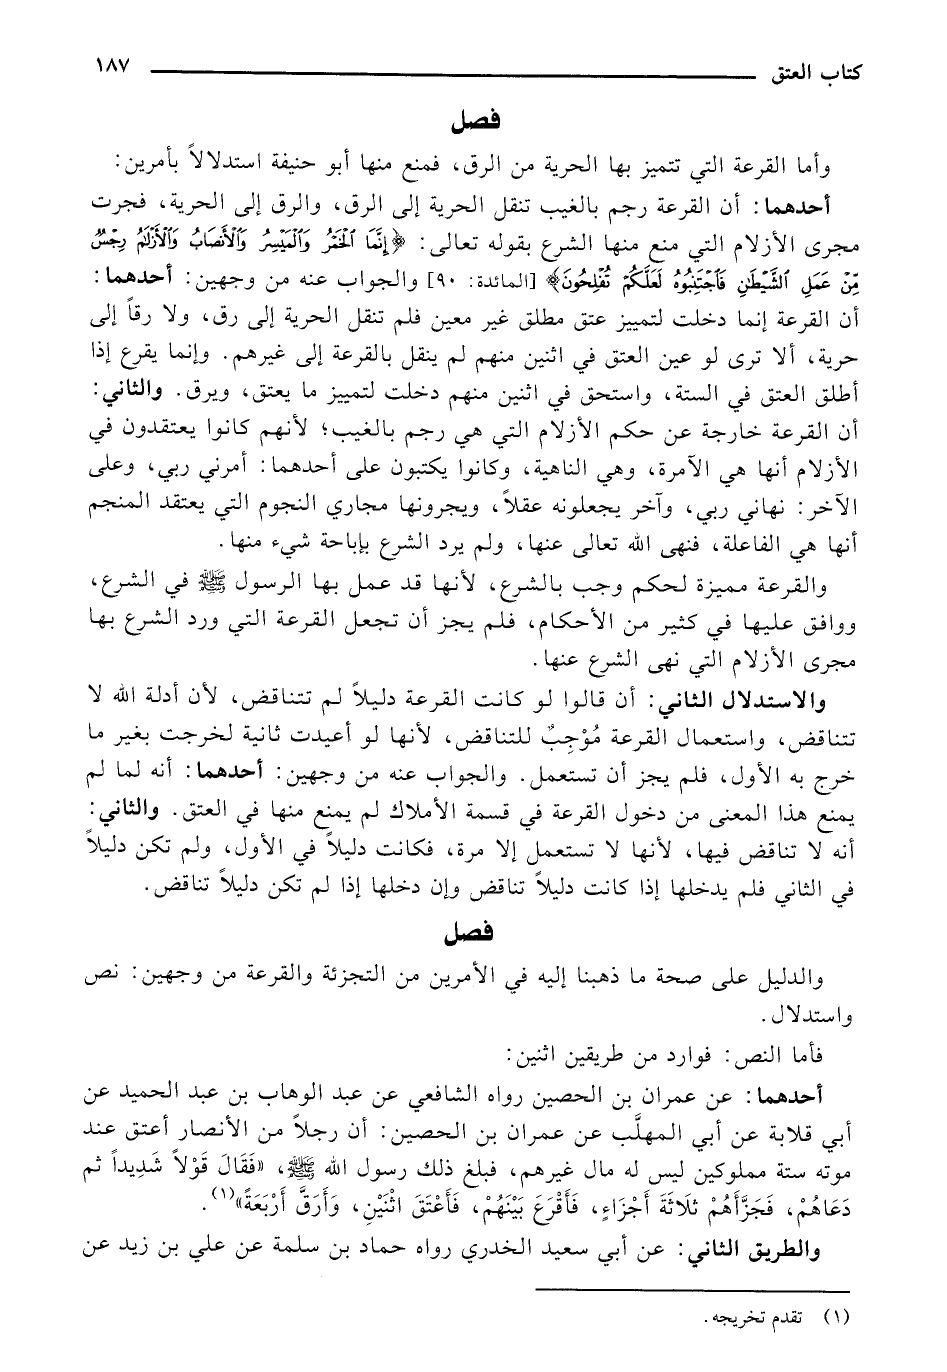 كتاب العتق ١٨٧
فصل
وأما القرعة التي تتميز بها الحرية من الرق، فمنع منها أبو حنيفة استدلالاً بأمرين:
أحدهما: أن القرعة رجم بالغيب تنقل الحرية إلى الرق، والرق إلى الحرية، فجرت
مجرى الأزلام التي منع منها الشرع بقوله تعالى: ﴿إِنَّمَا ٱلْخَمْرُ وَٱلْمَيْسِرُ وَٱلْأَنصَابُ وَٱلْأَزْلَٰمُ رِجْسٌ
مِّنْ عَمَلِ ٱلشَّيْطَٰنِ فَٱجْتَنِبُوهُ لَعَلَّكُمْ تُفْلِحُونَ﴾ [المائدة: ٩٠] والجواب عنه من وجهين: أحدهما:
أن القرعة إنما دخلت لتمييز عتق مطلق غير معين فلم تنقل الحرية إلى رق، ولا رقاً إلى
حرية، ألا ترى لو عين العتق في اثنين منهم لم ينقل بالقرعة إلى غيرهم. وإنما يقرع إذا
أطلق العتق في الستة، واستحق في اثنين منهم دخلت لتمييز ما يعتق، ويرق. والثاني:
أن القرعة خارجة عن حكم الأزلام التي هي رجم بالغيب؛ لأنهم كانوا يعتقدون في
الأزلام أنها هي الآمرة، وهي الناهية، وكانوا يكتبون على أحدهما: أمرني ربي، وعلى
الآخر: نهاني ربي، وآخر يجعلونه عقلاً، ويجرونها مجاري النجوم التي يعتقد المنجم
أنها هي الفاعلة، فنهى الله تعالى عنها، ولم يرد الشرع بإباحة شيء منها.
والقرعة مميزة لحكم وجب بالشرع، لأنها قد عمل بها الرسول ﷺ في الشرع،
ووافق عليها في كثير من الأحكام، فلم يجز أن تجعل القرعة التي ورد الشرع بها
مجرى الأزلام التي نهى الشرع عنها.
والاستدلال الثاني: أن قالوا لو كانت القرعة دليلاً لم تتناقض، لأن أدلة الله لا
تتناقض، واستعمال القرعة مُوْجِبٌ للتناقض، لأنها لو أعيدت ثانية لخرجت بغير ما
خرج به الأول، فلم يجز أن تستعمل. والجواب عنه من وجهين: أحدهما: أنه لما لم
يمنع هذا المعنى من دخول القرعة في قسمة الأملاك لم يمنع منها في العتق. والثاني:
أنه لا تناقض فيها، لأنها لا تستعمل إلا مرة، فكانت دليلاً في الأول، ولم تكن دليلاً
في الثاني فلم يدخلها إذا كانت دليلاً تناقض وإن دخلها إذا لم تكن دليلاً تناقض.
فصل
والدليل على صحة ما ذهبنا إليه في الأمرين من التجزئة والقرعة من وجهين: نص
واستدلال.
فأما النص: فوارد من طريقين اثنين:
أحدهما: عن عمران بن الحصين رواه الشافعي عن عبد الوهاب بن عبد الحميد عن
أبي قلابة عن أبي المهلَّب عن عمران بن الحصين: أن رجلاً من الأنصار أعتق عند
موته ستة مملوكين ليس له مال غيرهم، فبلغ ذلك رسول الله ﷺ، «فَقَالَ قَوْلاً شَدِيداً ثم
دَعَاهُمْ، فَجَزَّأَهُمْ ثَلاَثَةَ أَجْزَاءٍ، فَأَقْرَعَ بَيْنَهُمْ، فَأَعْتَقَ اثْنَيْنِ، وَأَرَقَّ أَرْبَعَةً»(١).
والطريق الثاني: عن أبي سعيد الخدري رواه حماد بن سلمة عن علي بن زيد عن
(١) تقدم تخريجه.